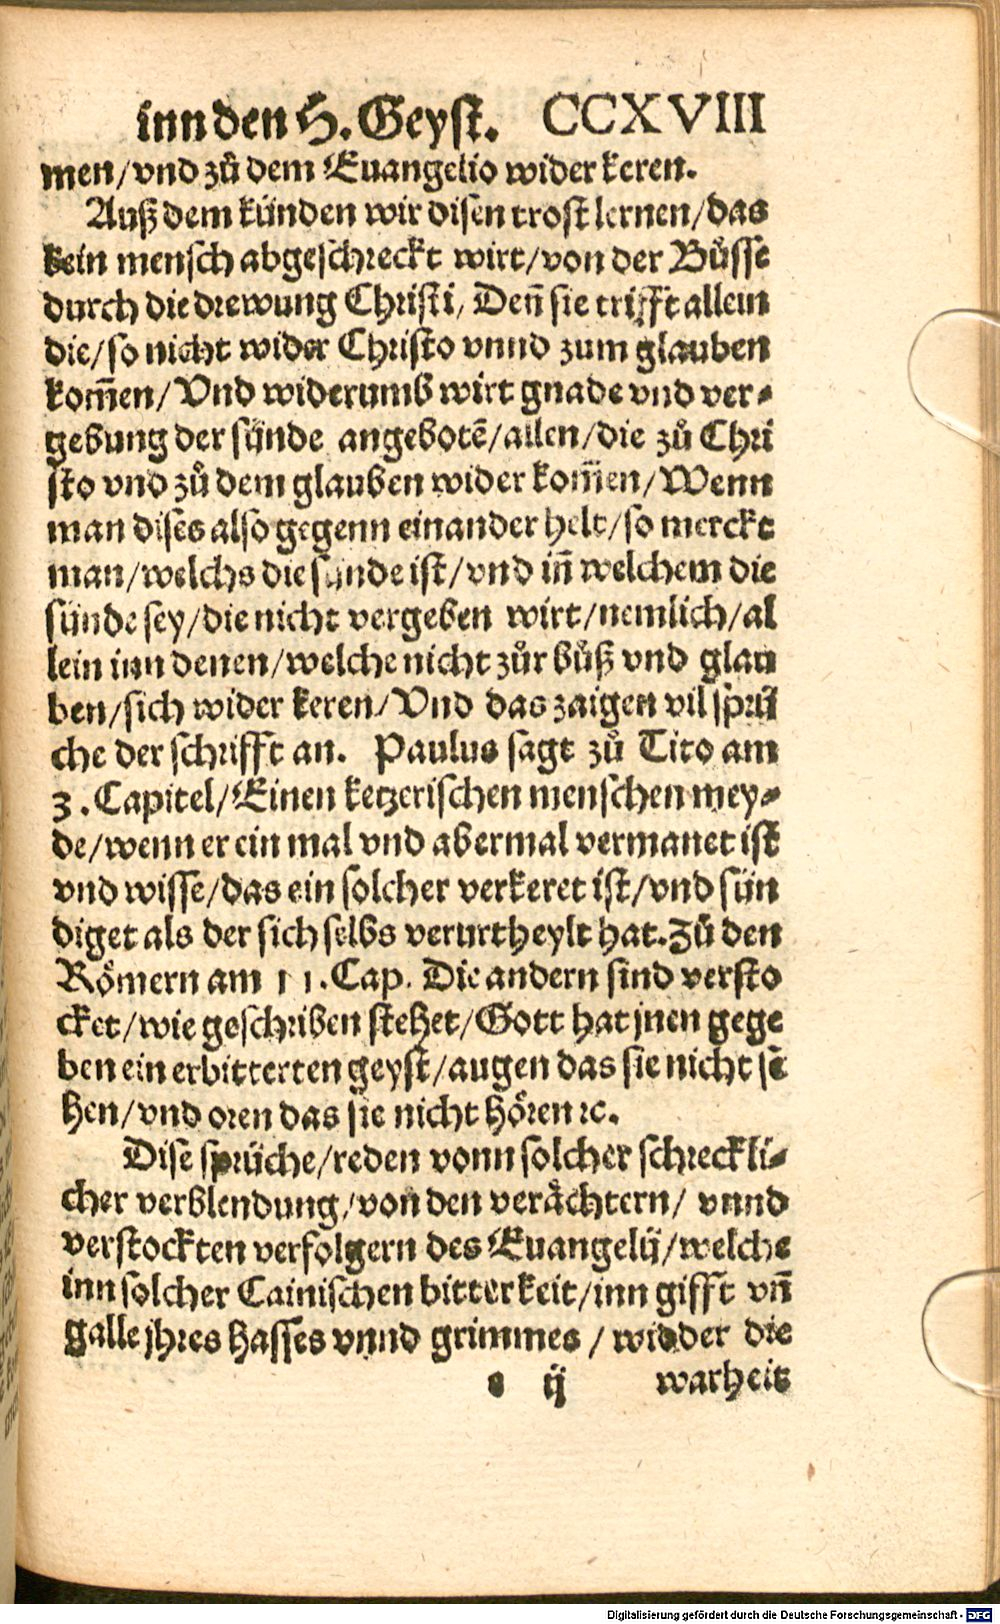 inn den H. Geyst. CCXVIII
men/vnd zů dem Euangelio wider keren.
Auß dem künden wir disen trost lernen/das
kein mensch abgeschreckt wirt/von der Bůsse
durch die drewung Christi, Deñ sie trifft allein
die/so nicht wider Christo vnnd zum glauben
kom̃en/Vnd widerumb wirt gnade vnd ver-
gebung der sünde angebotẽ/allen/die zů Chri
sto vnd zů dem glauben wider kom̃en/Wenn
man dises also gegenn einander helt/so merckt
man/welchs die sünde ist/vnd iñ welchem die
sünde sey/die nicht vergeben wirt/nemlich/al
lein inn denen/welche nicht zůr bůß vnd glau
ben/sich wider keren/Vnd das zaigen vil sprü
che der schrifft an. Paulus sagt zů Tito am
3. Capitel/Einen ketzerischen menschen mey-
de/wenn er ein mal vnd abermal vermanet ist
vnd wisse/das ein solcher verkeret ist/vnd sün
diget als der sich selbs verurtheylt hat. Zů den
Römern am 11. Cap. Die andern sind versto
cket/wie geschriben stehet/Gott hat jnen gege
ben ein erbitterten geyst/augen das sie nicht se
hen/vnd oren das sie nicht hören ꝛc.
Dise sprüche/reden vonn solcher schreckli-
cher verblendung/von den verächtern/ vnnd
verstockten verfolgern des Euangelij/welche
inn solcher Cainischen bitterkeit/inn gifft vñ
galle jhres hasses vnnd grimmes / widder die
e ij warheit
Digitalisierung gefördert durch die Deutsche Forschungsgemeinschaft - DFG